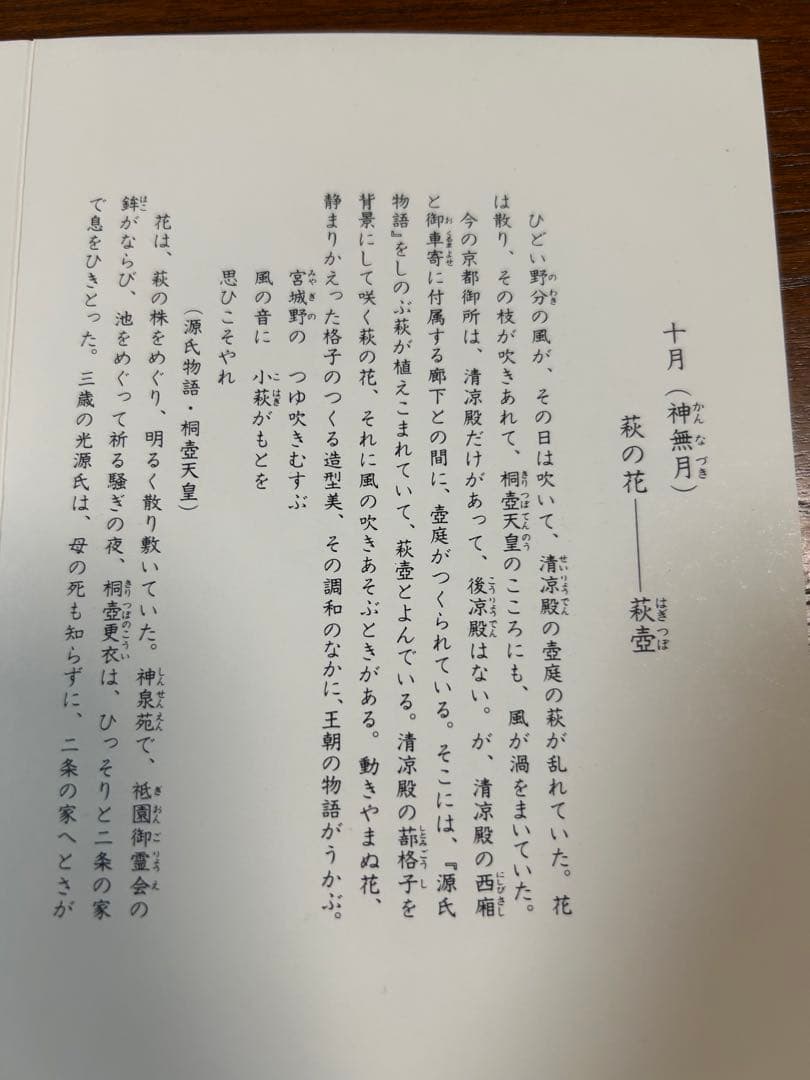 十月（神無月）
萩の花――萩壺
ひどい野分の風が、その日は吹いて、清涼殿の壺庭の萩が乱れていた。花
は散り、その枝が吹きあれて、桐壺天皇のこころにも、風が渦をまいていた。
今の京都御所は、清涼殿だけがあって、後涼殿はない。が、清涼殿の西廂
と御車寄に付属する廊下との間に、壺庭がつくられている。そこには、『源氏
物語』をしのぶ萩が植えこまれていて、萩壺とよんでいる。清涼殿の蔀格子を
背景にして咲く萩の花、それに風の吹きあそぶときがある。動きやまぬ花、
静まりかえった格子のつくる造型美、その調和のなかに、王朝の物語がうかぶ。
宮城野の　つゆ吹きむすぶ
風の音に　小萩がもとを
思ひこそやれ
（源氏物語・桐壺天皇）
花は、萩の株をめぐり、明るく散り敷いていた。神泉苑で、祇園御霊会の
鉾がならび、池をめぐって祈る騒ぎの夜、桐壺更衣は、ひっそりと二条の家
で息をひきとった。三歳の光源氏は、母の死も知らずに、二条の家へとさが